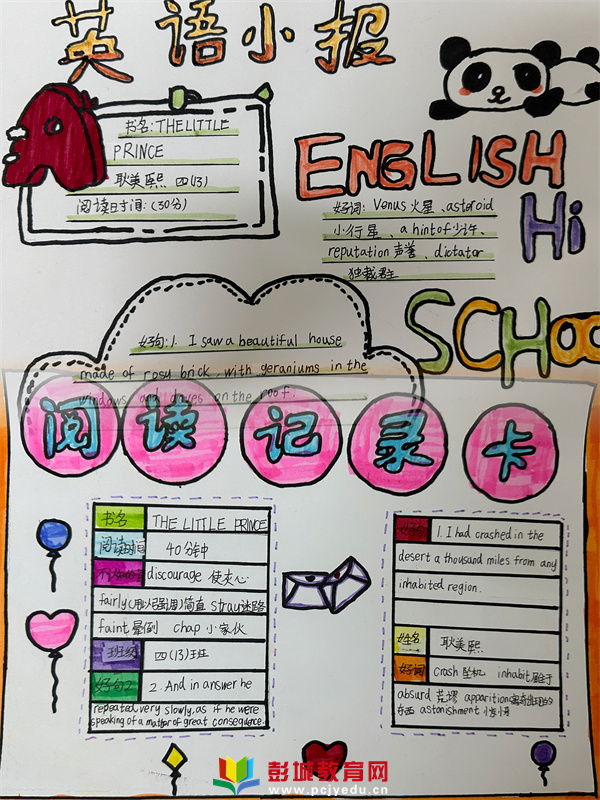 英语小报
书名:THE LITTLE
PRINCE
耿美熙 四(13)
阅读时间:(30分)
ENGLISH
Hi
SCHOO
好词: Venus 火星、asteroid
小行星、a hint of 少许、
reputation 声誉、dictator
独裁君
好句:1. I saw a beautiful house
made of rosy brick, with geraniums in the
windows and doves on the roof.
阅读记录卡
书名 THE LITTLE PRINCE
阅读时间 40分钟
discourage 使灰心
fairly(用以强调)简直 stray迷路
faint 晕倒 chap 小家伙
班级 四(13)班
好句2 2. And in answer he
repeated very slowly, as if he were
speaking of a matter of great consequence.
好句 1. I had crashed in the
desert a thousand miles from any
inhabited region.
姓名 耿美熙
好词 crash 坠机 inhabit 居于
absurd 荒谬 apparition
东西 astonishment
彭城教育网
www.pcjyedu.cn